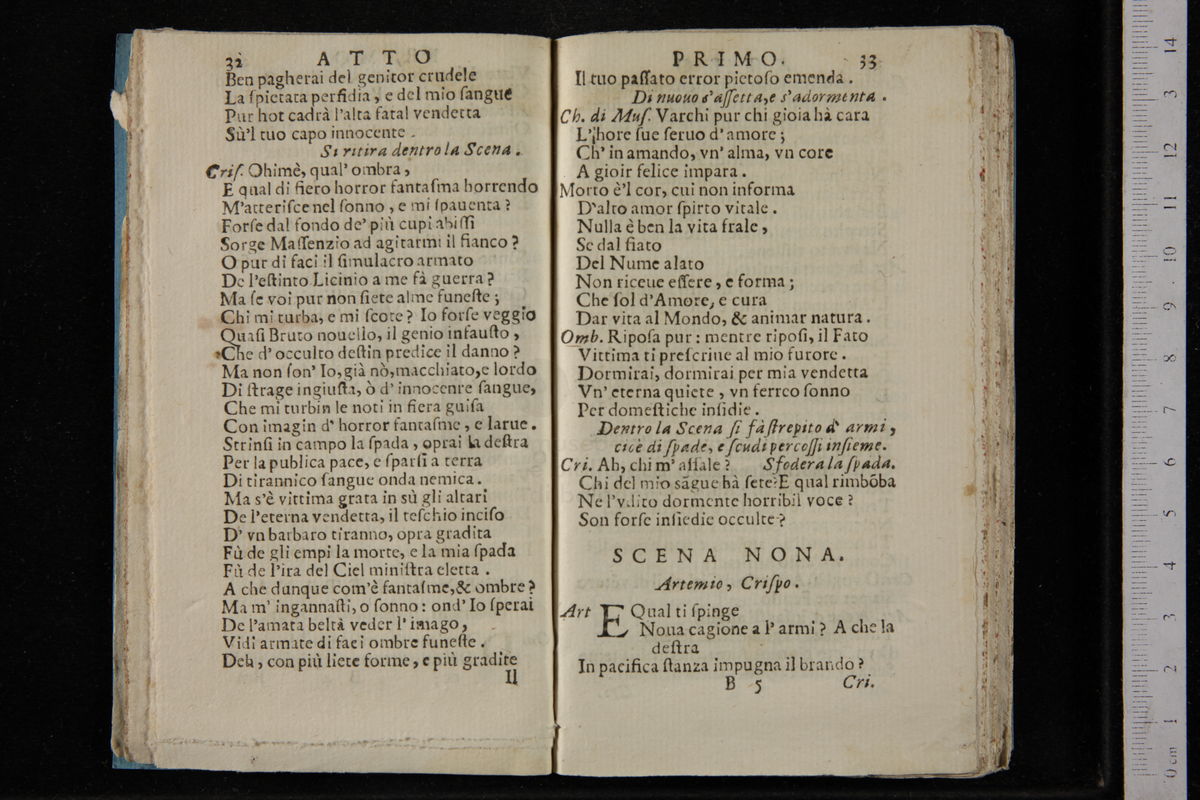 32 ATTO
Ben pagherai del genitor crudele
La ſpietata perfidia, e del mio ſangue
Pur hot cadrà l'alta fatal vendetta
Sù'l tuo capo innocente.
Si ritira dentro la Scena.
Criſ. Ohimè, qual' ombra,
E qual di fiero horror fantaſma horrendo
M'atteriſce nel ſonno, e mi ſpauenta?
Forſe dal fondo de' più cupi abiſſi
Sorge Maſſenzio ad agitarmi il fianco?
O pur di faci il ſimulacro armato
De l'eſtinto Licinio a me fà guerra?
Ma ſe voi pur non ſiete alme funeſte;
Chi mi turba, e mi ſcote? Io forſe veggio
Quaſi Bruto nouello, il genio infauſto,
Che d' occulto deſtin predice il danno?
Ma non ſon' Io, già nò, macchiato, e lordo
Di ſtrage ingiuſta, ò d' innocenre ſangue,
Che mi turbin le noti in fiera guiſa
Con imagin d' horror fantaſme, e larue.
Strinſi in campo la ſpada, oprai la deſtra
Per la publica pace, e ſparſi a terra
Di tirannico ſangue onda nemica.
Ma s'è vittima grata in sù gli altari
De l'eterna vendetta, il teſchio inciſo
D' vn barbaro tiranno, opra gradita
Fù de gli empi la morte, e la mia ſpada
Fù de l'ira del Ciel miniſtra eletta.
A che dunque com'è fantaſme, & ombre?
Ma m' ingannaſti, o ſonno: ond' Io ſperai
De l'amata beltà veder l' imago,
Vidi armate di faci ombre funeſte.
Deh, con più liete forme, e più gradite
Il
PRIMO. 33
Il tuo paſſato error pietoſo emenda.
Di nuouo s'aſſetta, e s'adormenta.
Ch. di Muſ. Varchi pur chi gioia hà cara
L'hore ſue ſeruo d' amore;
Ch' in amando, vn' alma, vn core
A gioir felice impara.
Morto è'l cor, cui non informa
D'alto amor ſpirto vitale.
Nulla è ben la vita frale,
Se dal fiato
Del Nume alato
Non riceue eſſere, e forma;
Che ſol d'Amore, e cura
Dar vita al Mondo, & animar natura.
Omb. Ripoſa pur: mentre ripoſi, il Fato
Vittima ti preſcriue al mio furore.
Dormirai, dormirai per mia vendetta
Vn' eterna quiete, vn ferreo ſonno
Per domeſtiche inſidie.
Dentro la Scena ſi fà ſtrepito d' armi,
cioè di ſpade, e ſcudi percoſſi inſieme.
Cri. Ah, chi m' aſſale? Sfodera la ſpada.
Chi del mio sāgue hà ſete? E qual rimbōba
Ne l'vdito dormente horribil voce?
Son forſe inſiedie occulte?
SCENA NONA.
Artemio, Criſpo.
Art E Qual ti ſpinge
Noua cagione a l' armi? A che la
deſtra
In pacifica ſtanza impugna il brando?
B 5 Cri.
14
13
12
11
10
9
8
7
6
5
4
3
2
1
0 cm